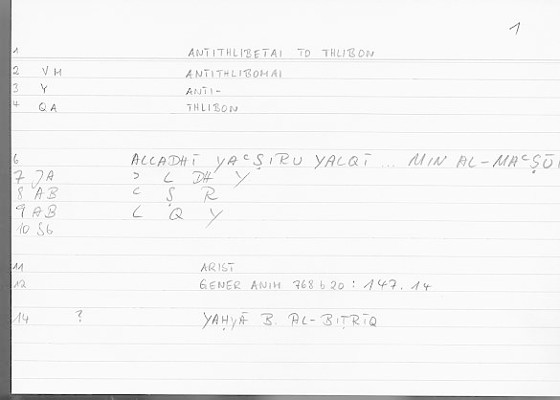 1
1 ANTITHLIBETAI TO THLIBON
2 VM ANTITHLIBOMAI
3 Y ANTI-
4 QA THLIBON
6 ALLADHĪ YAᶜṢIRU YALQĪ ... MIN AL-MAᶜṢŪ
7 JA ʾ L DH Y
8 AB ᶜ Ṣ R
9 AB L Q Y
10 Sb
11 ARIST
12 GENER ANIM 768 b 20 : 147.14
14 ? YAḤYĀ B. AL-BIṬRĪQ